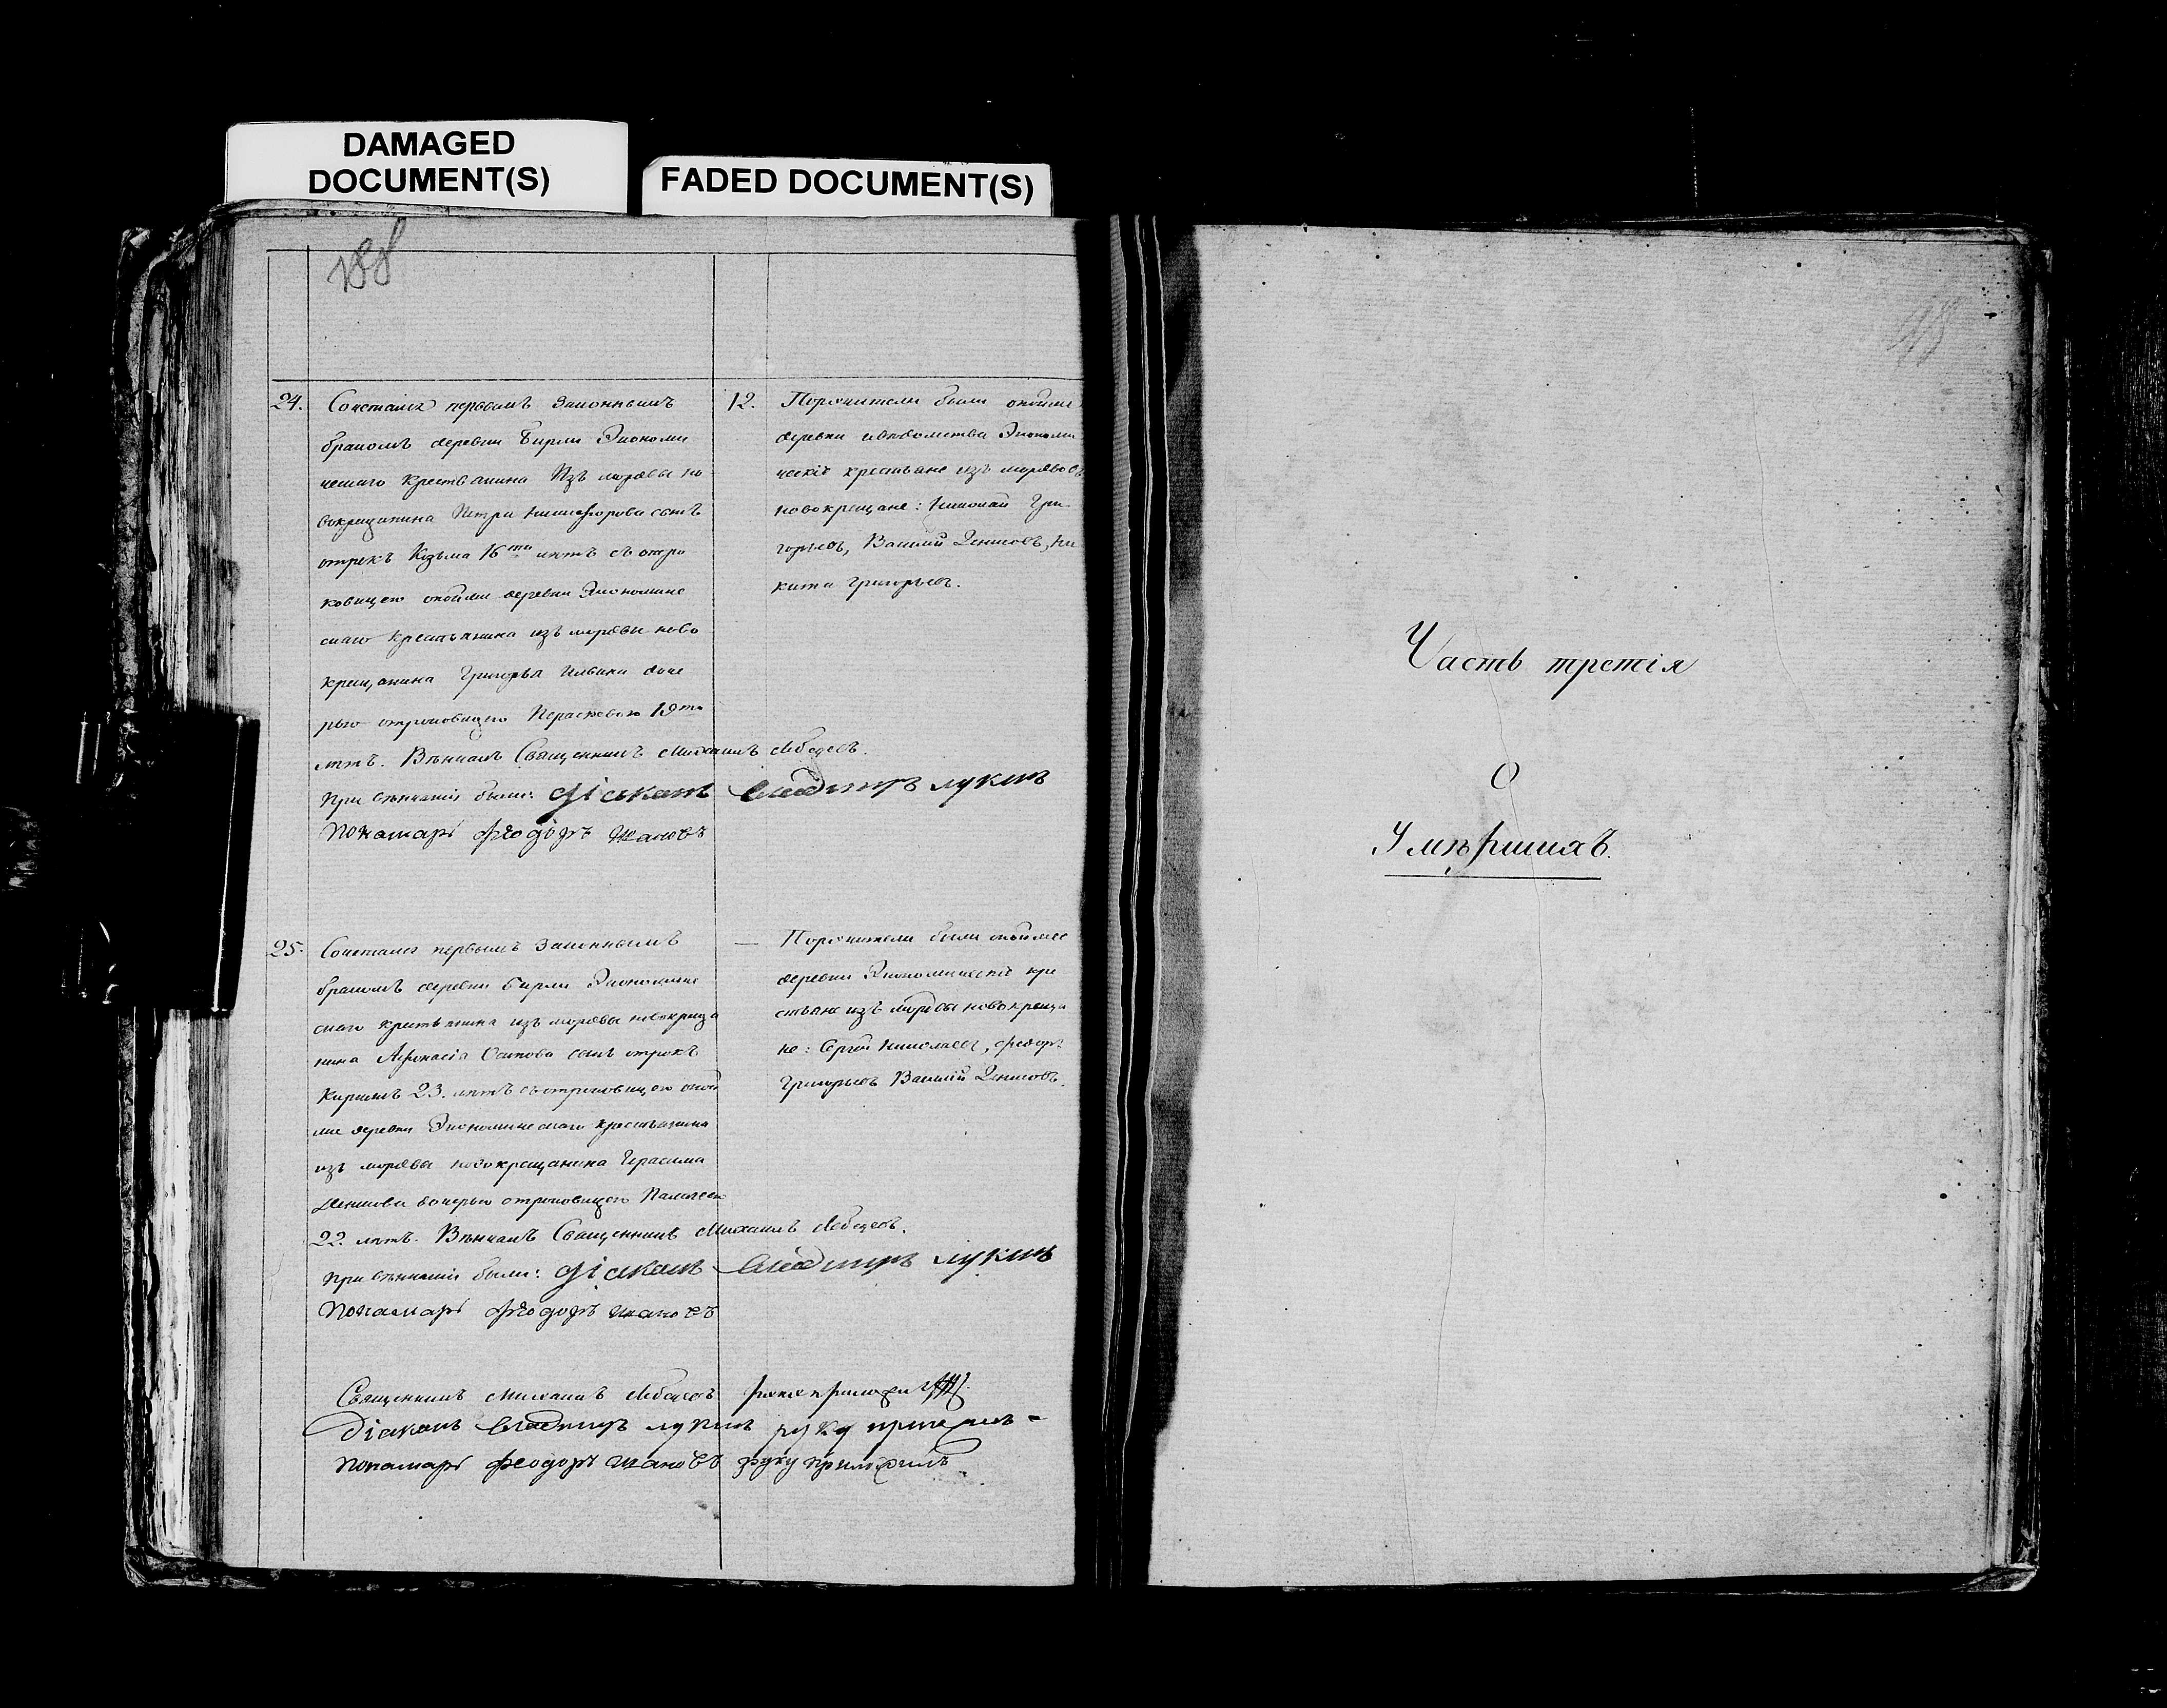 DAMAGED
DOCUMENT(S)
FADED DOCUMENT(S)
24.
Сочетался первымъ законнымъ
бракомъ деревни Бирли Экономи
ческаго крестьянина Изъ мордвы но
вокрещенина Петра Никифорова сынъ
отрокъ Козьма 16ти лѣтъ съ отро
ковицею оной же деревни Экономиче
скаго крестьянина изъ мордвы ново
крещанина Григорья доче
рью отроковицею Параскевою 19ти
лѣтъ. Вѣнчалъ Священникъ Михаилъ Лебедевъ.
При вѣнчаніи были: Діаконъ Владимиръ Лукинъ
Пономарь Ѳеодоръ Ивановъ
12.
Поручители были оной же
деревни вѣдомства Экономи
ческіе крестьяне изъ мордвовъ
новокрещане: Николай Гри
горьевъ, Василій Денисовъ, Ни
кита Григорьевъ.
25.
Сочетался первымъ законнымъ
бракомъ деревни Бирли Экономиче
скаго крестьянина изъ мордвы новокреща
нина Афонасія Осипова сынъ отрокъ
Кирилъ 23. лѣтъ съ отроковицею оной
же деревни Экономическаго крестьянина
изъ мордвы новокрещанина Герасима
Денисова дочерью отроковицею
22. лѣтъ. Вѣнчалъ Священникъ Михаилъ Лебедевъ.
При вѣнчаніи были: Діаконъ Владимиръ Лукинъ
Пономарь Ѳеодоръ Ивановъ
—
Поручители были оной же
деревни Экономическіе кре
стьяне изъ мордвы новокреща
не: Сергей Николаевъ, Федоръ
Григорьевъ Василій Денисовъ.
Священникъ Михаилъ Лебедевъ руку приложилъ
Діаконъ Владимиръ Лукинъ руку приложилъ
Пономарь Ѳеодоръ Ивановъ руку приложилъ
Часть третія
О
Умѣршихъ.